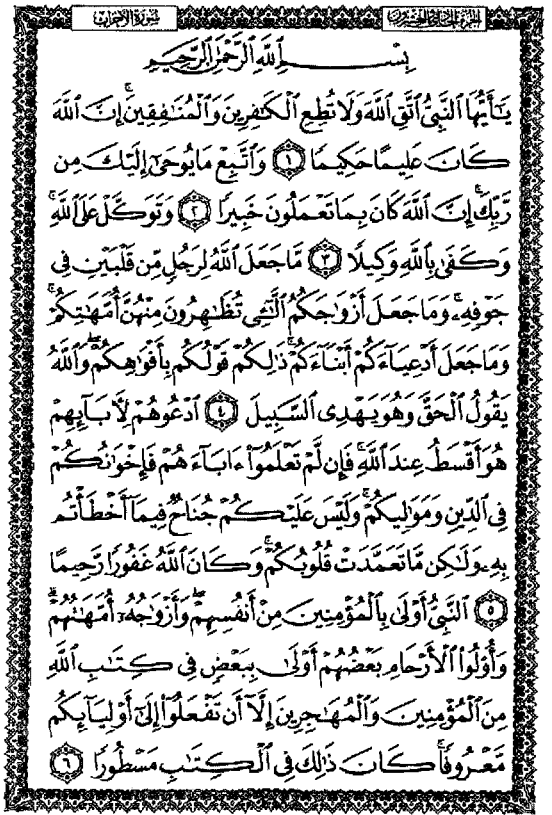 الجزء الحادي والعشرون سورة الأحزاب
بِسْمِ ٱللَّهِ ٱلرَّحْمَٰنِ ٱلرَّحِيمِ
يَٰٓأَيُّهَا ٱلنَّبِيُّ ٱتَّقِ ٱللَّهَ وَلَا تُطِعِ ٱلْكَٰفِرِينَ وَٱلْمُنَٰفِقِينَۗ إِنَّ ٱللَّهَ
كَانَ عَلِيمًا حَكِيمًا ١ وَٱتَّبِعْ مَا يُوحَىٰٓ إِلَيْكَ مِن
رَّبِّكَۚ إِنَّ ٱللَّهَ كَانَ بِمَا تَعْمَلُونَ خَبِيرًا ٢ وَتَوَكَّلْ عَلَى ٱللَّهِۚ
وَكَفَىٰ بِٱللَّهِ وَكِيلًا ٣ مَّا جَعَلَ ٱللَّهُ لِرَجُلٍ مِّن قَلْبَيْنِ فِى
جَوْفِهِۦۚ وَمَا جَعَلَ أَزْوَٰجَكُمُ ٱلَّٰٓـِٔى تُظَٰهِرُونَ مِنْهُنَّ أُمَّهَٰتِكُمْۚ
وَمَا جَعَلَ أَدْعِيَآءَكُمْ أَبْنَآءَكُمْۚ ذَٰلِكُمْ قَوْلُكُم بِأَفْوَٰهِكُمْۖ وَٱللَّهُ
يَقُولُ ٱلْحَقَّ وَهُوَ يَهْدِى ٱلسَّبِيلَ ٤ ٱدْعُوهُمْ لِءَابَآئِهِمْ
هُوَ أَقْسَطُ عِندَ ٱللَّهِۚ فَإِن لَّمْ تَعْلَمُوٓا۟ ءَابَآءَهُمْ فَإِخْوَٰنُكُمْ
فِى ٱلدِّينِ وَمَوَٰلِيكُمْۚ وَلَيْسَ عَلَيْكُمْ جُنَاحٌ فِيمَآ أَخْطَأْتُم
بِهِۦ وَلَٰكِن مَّا تَعَمَّدَتْ قُلُوبُكُمْۚ وَكَانَ ٱللَّهُ غَفُورًا رَّحِيمًا
٥ ٱلنَّبِىُّ أَوْلَىٰ بِٱلْمُؤْمِنِينَ مِنْ أَنفُسِهِمْۖ وَأَزْوَٰجُهُۥٓ أُمَّهَٰتُهُمْۗ
وَأُو۟لُوا۟ ٱلْأَرْحَامِ بَعْضُهُمْ أَوْلَىٰ بِبَعْضٍ فِى كِتَٰبِ ٱللَّهِ
مِنَ ٱلْمُؤْمِنِينَ وَٱلْمُهَٰجِرِينَ إِلَّآ أَن تَفْعَلُوٓا۟ إِلَىٰٓ أَوْلِيَآئِكُم
مَّعْرُوفًاۚ كَانَ ذَٰلِكَ فِى ٱلْكِتَٰبِ مَسْطُورًا ٦